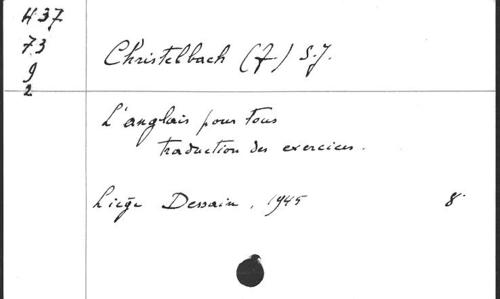 H37
73
9
2
Christelbach (F.) S.J.
L'anglais pour Tous
traduction des exercices.
Liège Dessain, 1945 8°